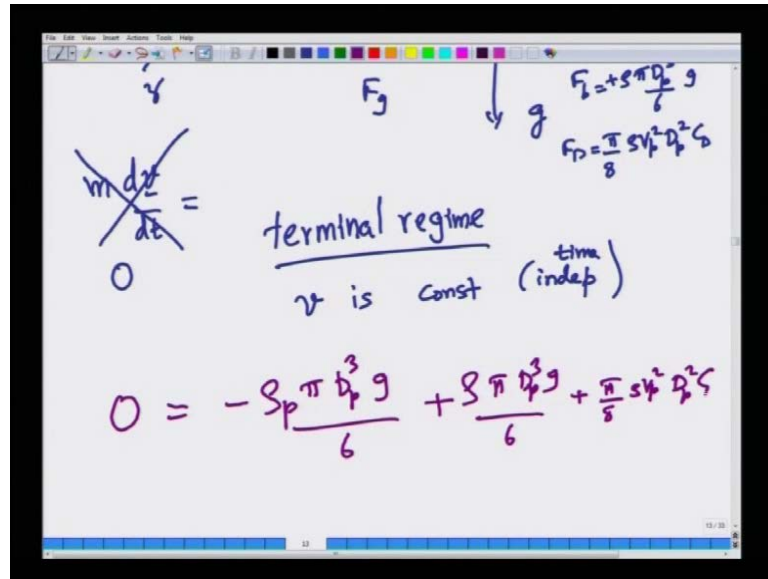 File Edit View Insert Actions Tools Help
γ
F_g
g
F_b = + ρ π D_p^3 / 6 g
F_D = π/8 ρ V_p^2 D_p^2 C_D
m dv/dt =
0
terminal regime
v is const (time indep)
0 = - ρ_p π D_p^3 g / 6 + ρ π D_p^3 g / 6 + π/8 ρ V_p^2 D_p^2 C_D
13/33
13